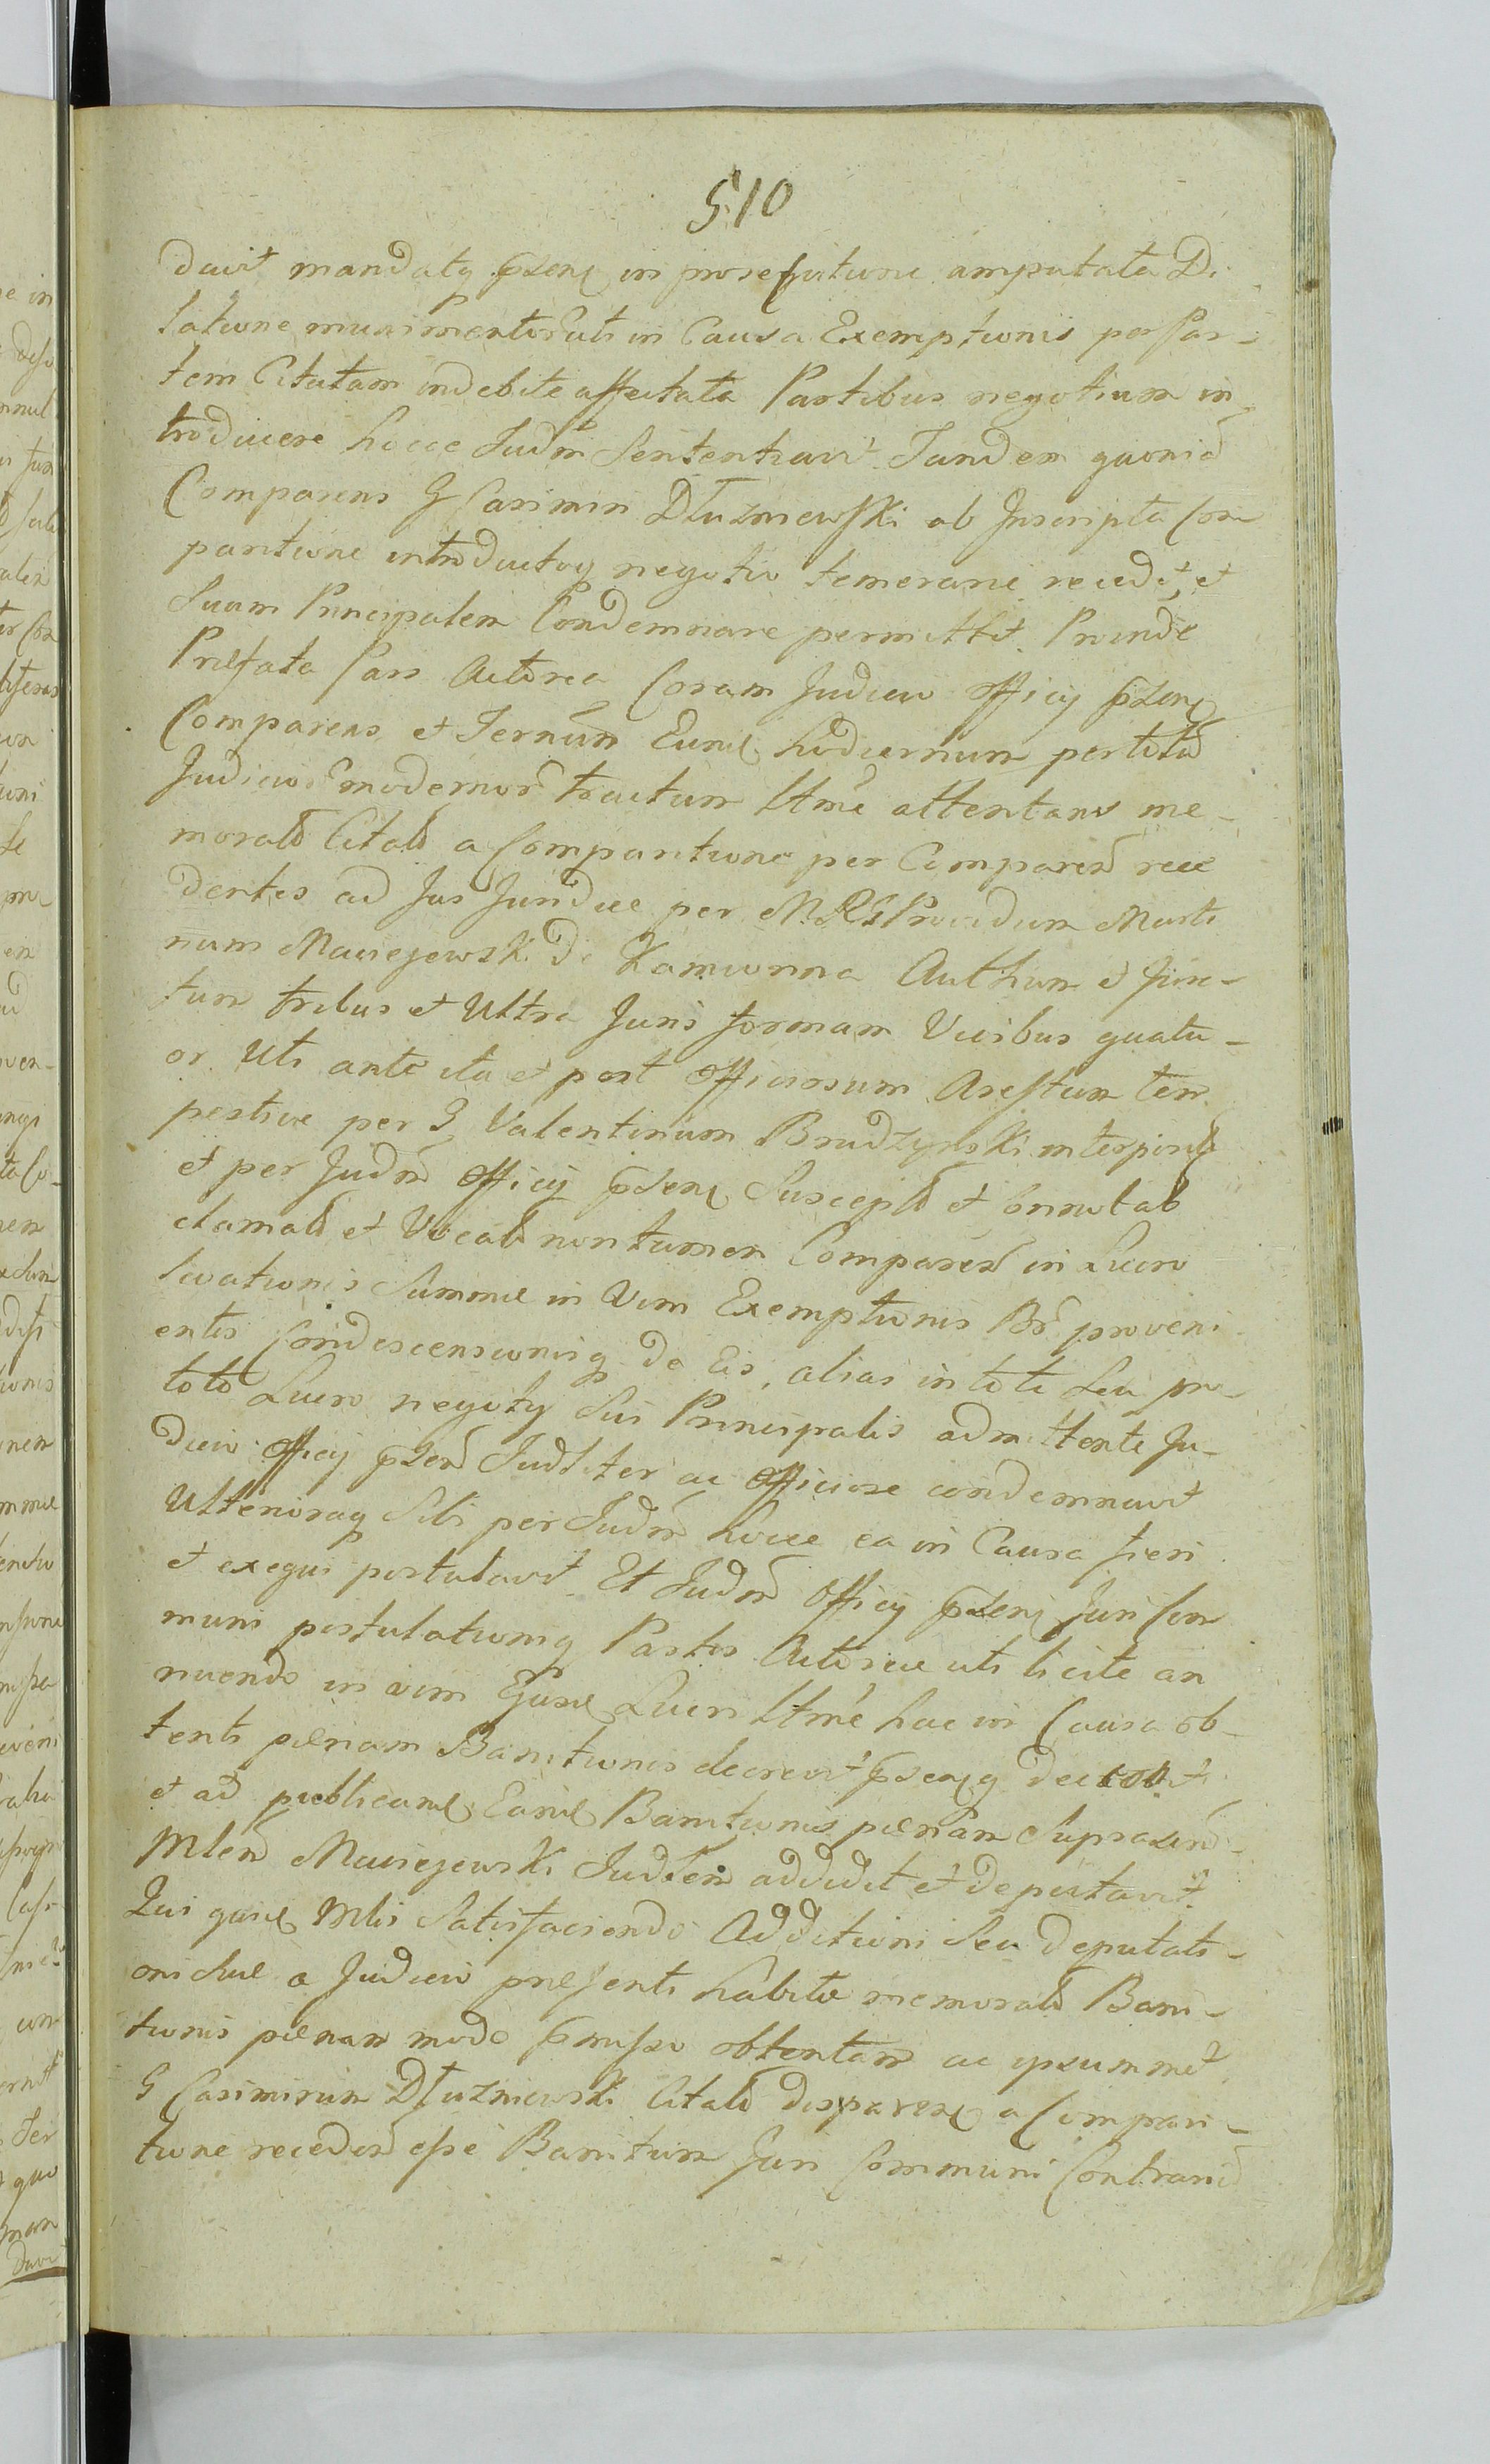 510
davit mandatq pszens in prosequutione amputata Di
latione munimentor uti in Causa Exemptionis per Par-
tem Citatam indebite affectata Partibus negotium in
troducere hocce Judm Sententiavit Tandem quonid
Comparens G Casimiri Dłuzniewski ab Inscripta Com
paritione introductoq negotio temerarie recedit, et
Suum Principalem Condemnare permittit. Proinde
Præfata Pars Actorea Coram Judicio Officij pszens
Comparens et Terminum Eund hodiernum per totū
Judicior modernor tractum lltme attentans me-
morald Citatū a Comparitione per Comparend rece
dentes ad Jus Juridice per M. RG Providum Marti
num Maciejewski de Kamionna Authum et Jura-
tum tribus et Ultra Juris formam Vicibus quatu-
or Uti ante ita et post Officiosum Arestum tem
pestive per G Valentinum Brudzynski interposit
et per Judm Officij pszens Susceptū et Connotat
clamatū et Vocatū non tamen Comparend in Lucro
levationis Summæ in Vim Exemptionis Br proveni
entis Condescensionisq de Eis, alias in toto Seu pro
toto Lucro negotij Sui Principalis admittente Ju-
dicio Officij pszens Judlter ac Officiose condemnavit
Ulterioraq Sibi per Judm hocce ea in Causa fieri
et exequi postulavit. Et Judm Officij pszens Juri Com
muni postulationiq Partis Actoreæ uti licite an
nuendo in vim Ejusd Lucri lltme hac in Causa ob-
tenti pænam Banitionis decrevit pszensq decernit
et ad publicand Eand Banitionis pænam Suprascrip
Mlem Maciejewski Judlem addidit et deputavit
Qui quid Mlis Satisfaciendo Additioni Seu deputati-
oni Suæ a Judicio præsenti habitæ memoratā Bani-
tionis pænam modo præmisso obtentam ac ipsummet
G Casimirum Dłuzniewski Citatū disparens a Compari-
tione recedend esse Banitum Juri Communi Contrariū